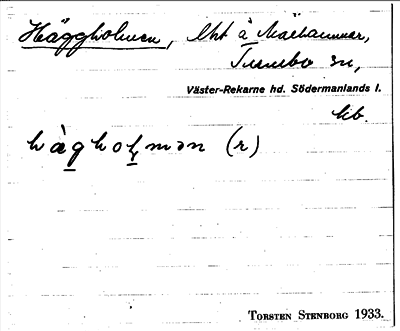 Häggholmen, lht å Mälhammar,
Tumbo sn,
Väster-Rekarne hd. Södermanlands l.
kb.
hàgholmən (r)
TORSTEN STENBORG 1933.